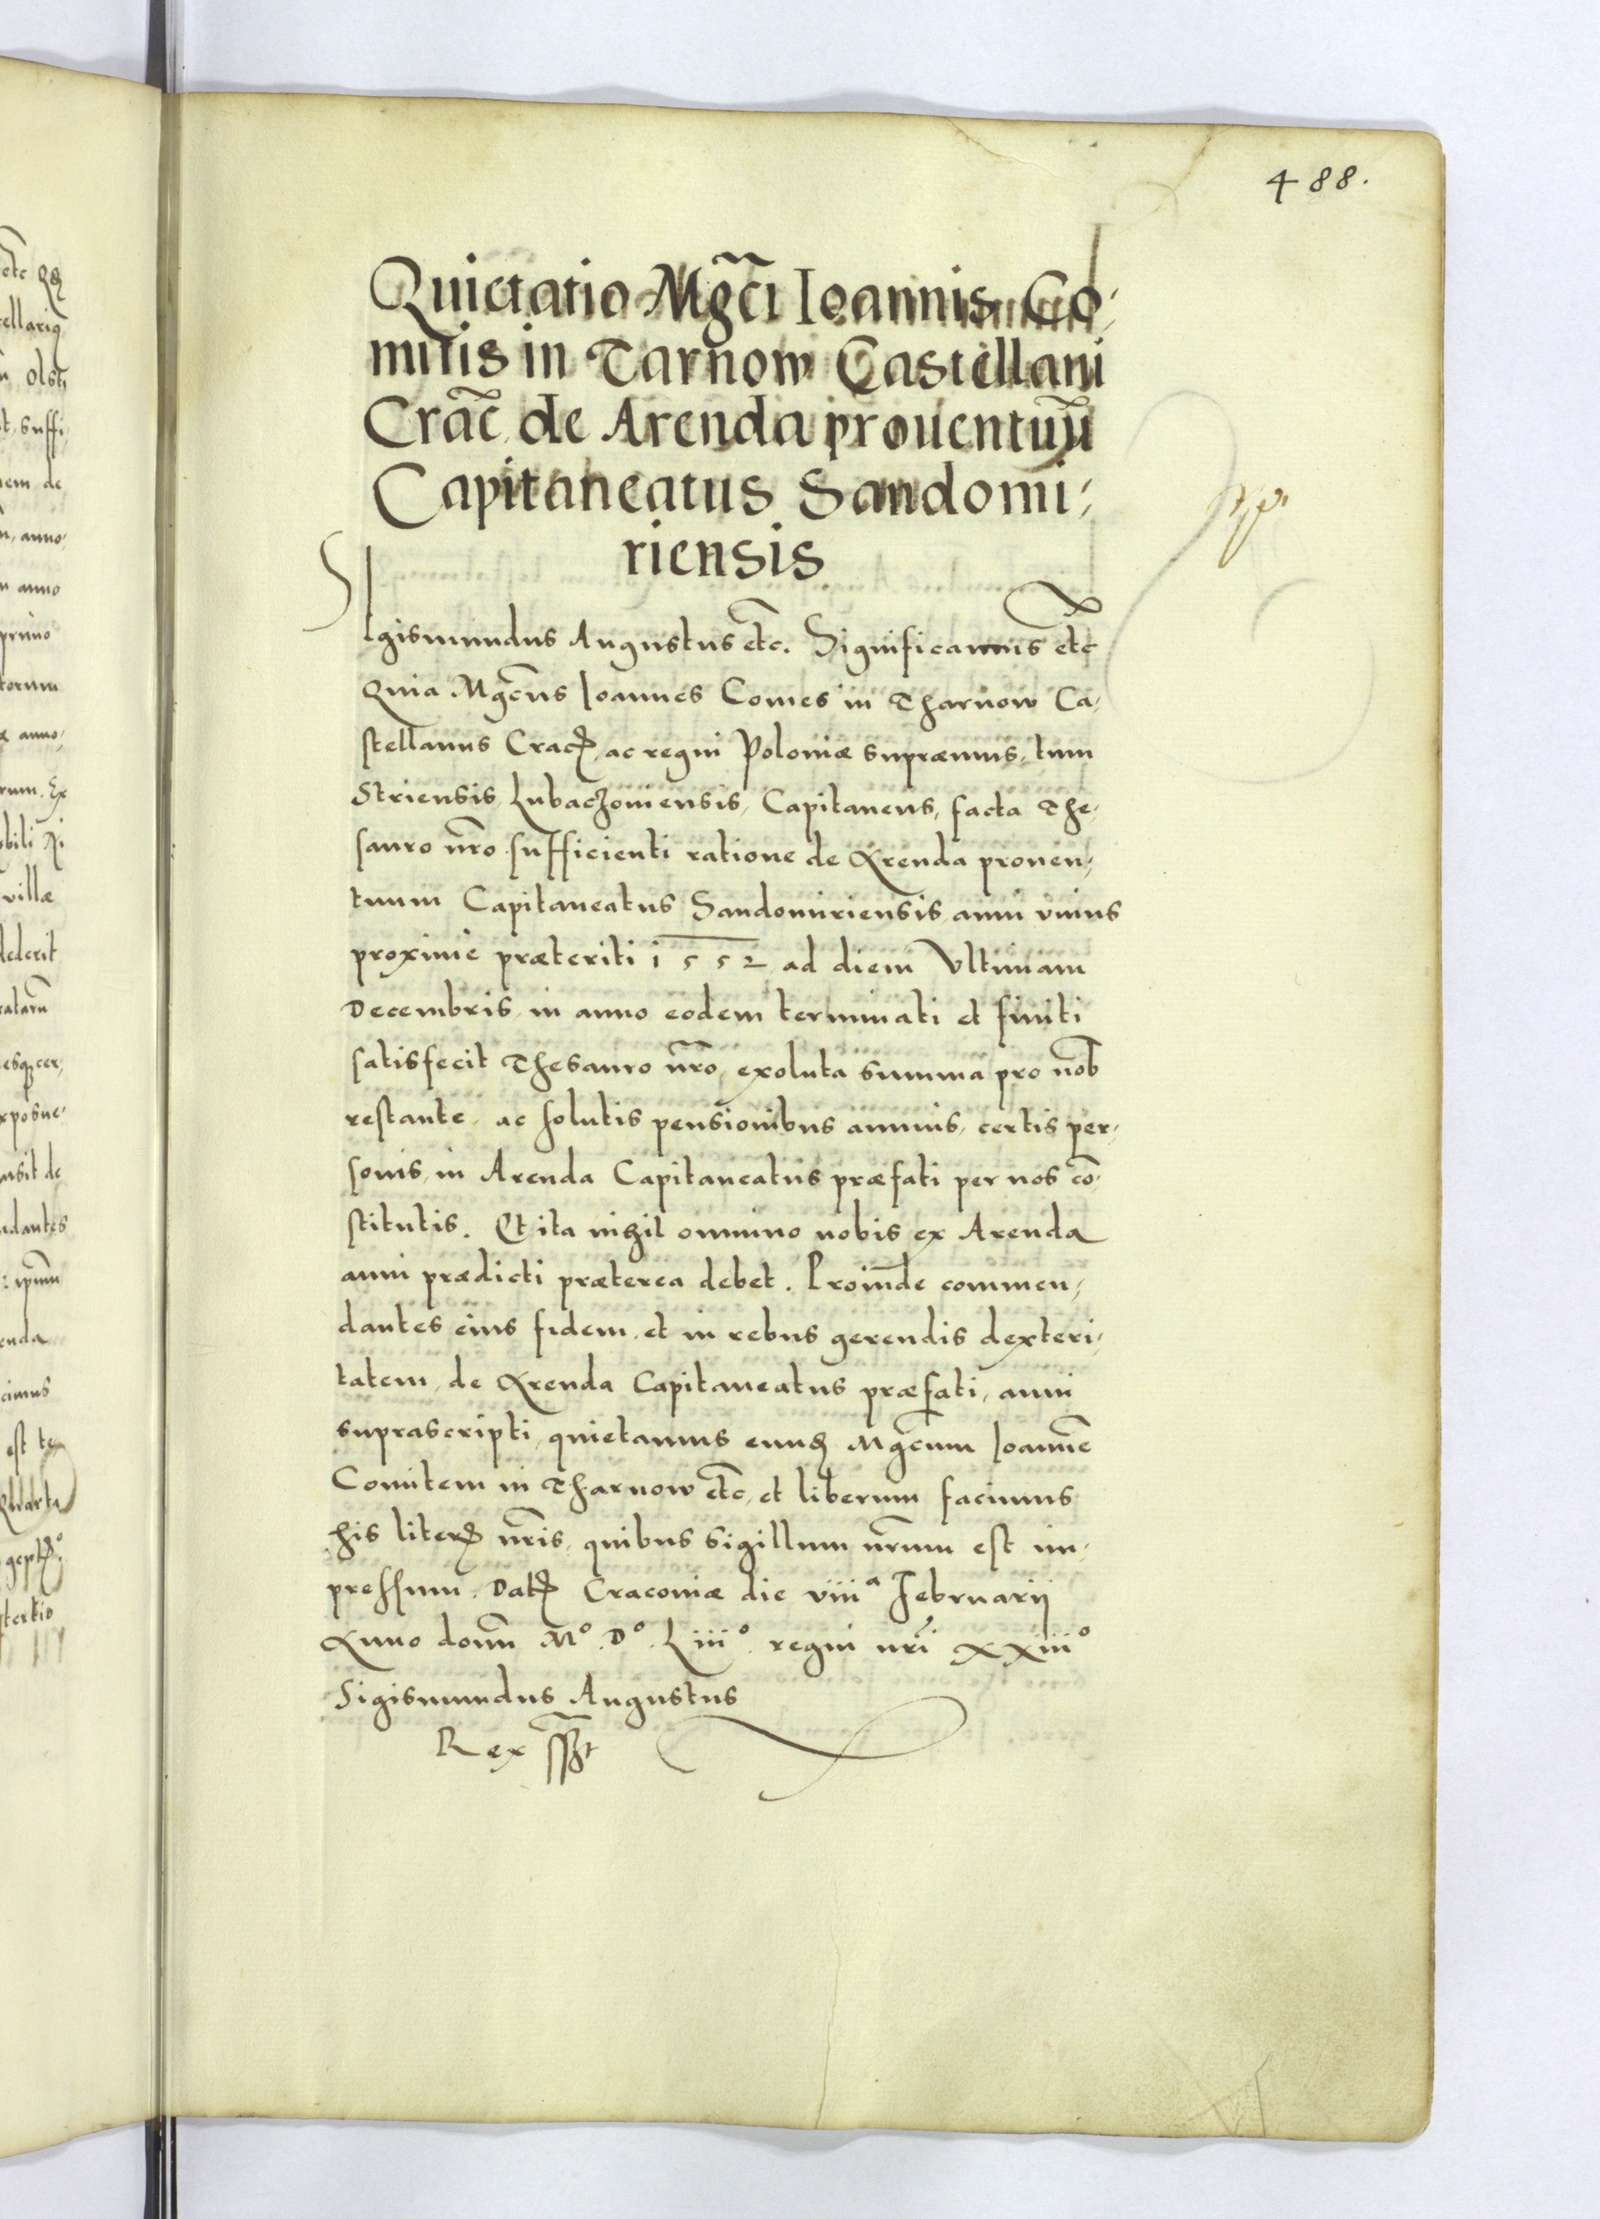 488.
Quietatio Mgci Ioannis Co-
mitis in Tarnow Castellani
Crac̃ de Arenda prouentuũ
Capitaneatus Sandomi-
riensis
Sigismundus Augustus etc̃. Significamus etc̃
Quia Mgc̃us Ioannes Comes in Tharnow Ca-
stellanus Crac̃, ac regni Poloniæ supræmus, tum
Striensis, Lubaczouiensis, Capitaneus, facta The-
sauro nr̃o sufficienti ratione de Arenda prouen-
tuum Capitaneatus Sandomiriensis anni vnius
proxime præteriti 1552 ad diem Vltimam
Decembris, in anno eodem terminati et finiti
satisfecit Thesauro nr̃o, exoluta summa pro nob̃
restante, ac solutis pensionibus annuis, certis per-
sonis, in Arenda Capitaneatus præfati per nos cõ-
stitutis. Et ita nihil omnino nobis ex Arenda
anni prædicti præterea debet. Proinde commen-
dantes eius fidem, et in rebus gerendis dexteri-
tatem, de Arenda Capitaneatus præfati, anni
suprascripti, quietamus eund̃ Mgc̃um Ioannẽ
Comitem in Tharnow etc̃, et liberum facimus
his literꝭ nr̃is, quibus sigillum nr̃um est im-
pressum. Datꝭ Cracouiæ die viiiᵃ Februarij
Anno domĩ Mº. Dº. Liiiº. regni nr̃i xxiiiº
Sigismundus Augustus
Rex sszt